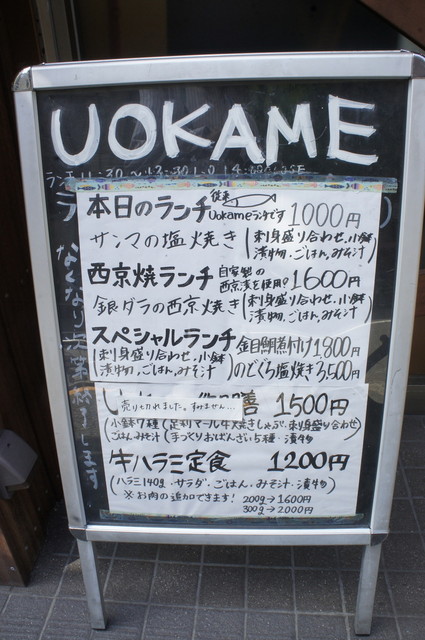 UOKAME
ランチ 11:30
本日のランチ 従来 Uokameランチです 1000円
サンマの塩焼き (刺身盛り合わせ、小鉢 漬物、ごはん、みそ汁
西京焼ランチ 自家製の西京漬を使用! 1600円
銀ダラの西京焼き (刺身盛り合わせ、小鉢 漬物、ごはん、みそ汁
スペシャルランチ 金目鯛煮付け 1,800円
(刺身盛り合わせ、小鉢 漬物、ごはん、みそ汁) のどぐろ塩焼き 3,500円
売り切れました。すみません… 膳 1500円
小鉢7種 (足利マール牛大焼きしゃぶ、刺身盛り合わせ)
ごはんみそ汁 (手っくりおばんざい5種・漬物
牛ハラミ定食 1200円
(ハラミ140g・サラダ・ごはん・みそ汁・漬物)
※お肉の追加できます! 200g→1600円
300g→2000円
なくなり次第終了します